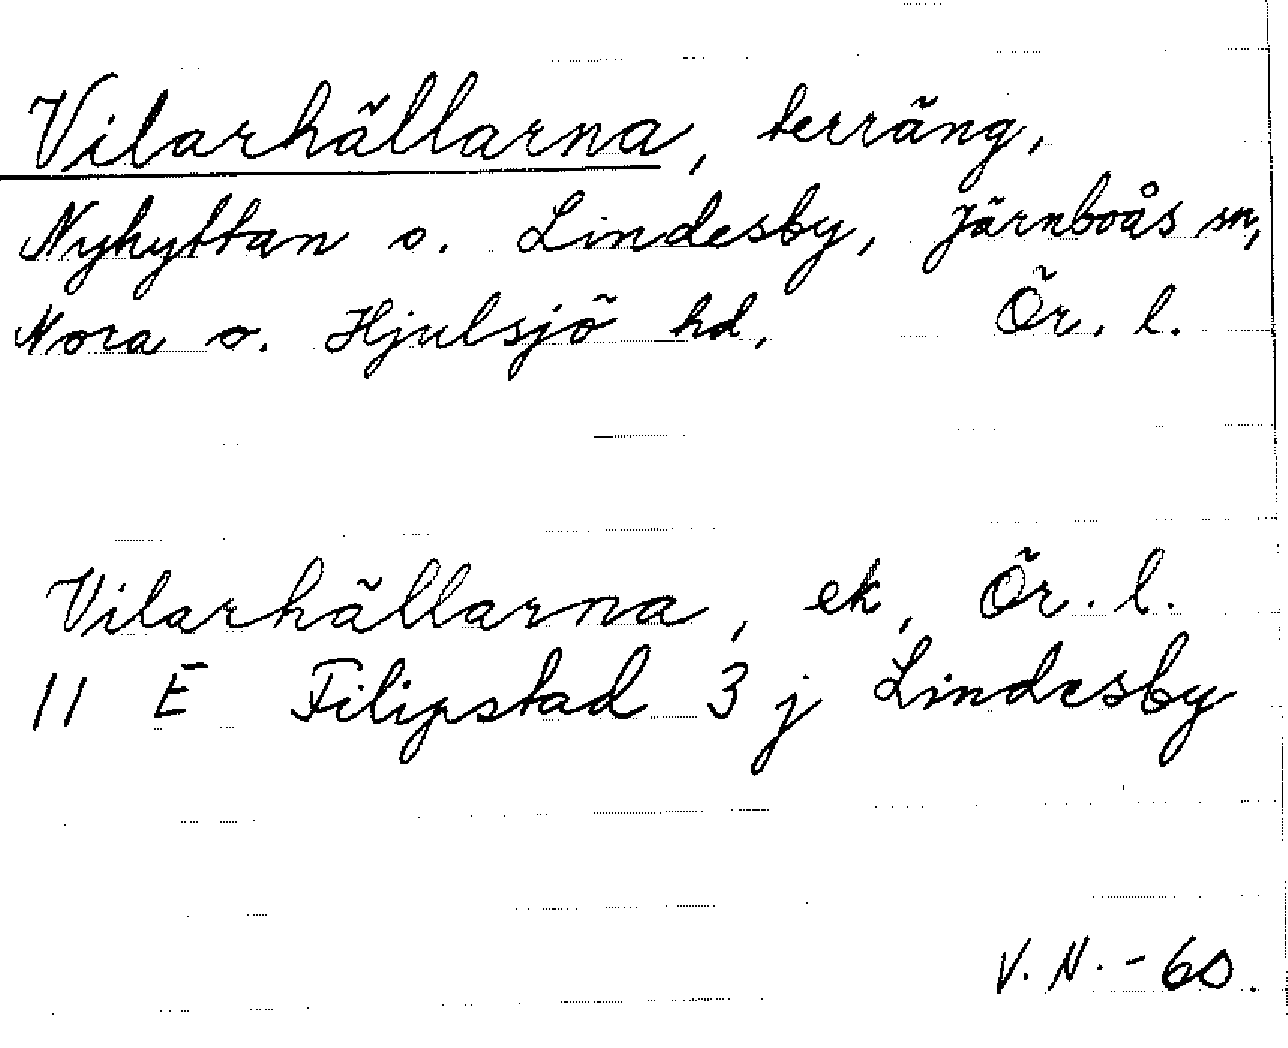 Vilarhällarna, terräng,
Nyhyttan o. Lindesby, Järnboås sn,
Nora o. Hjulsjö hd, Ör. l.
Vilarhällarna, ek, Ör. l.
11 E Filipstad 3 j Lindesby
V.N.-60.